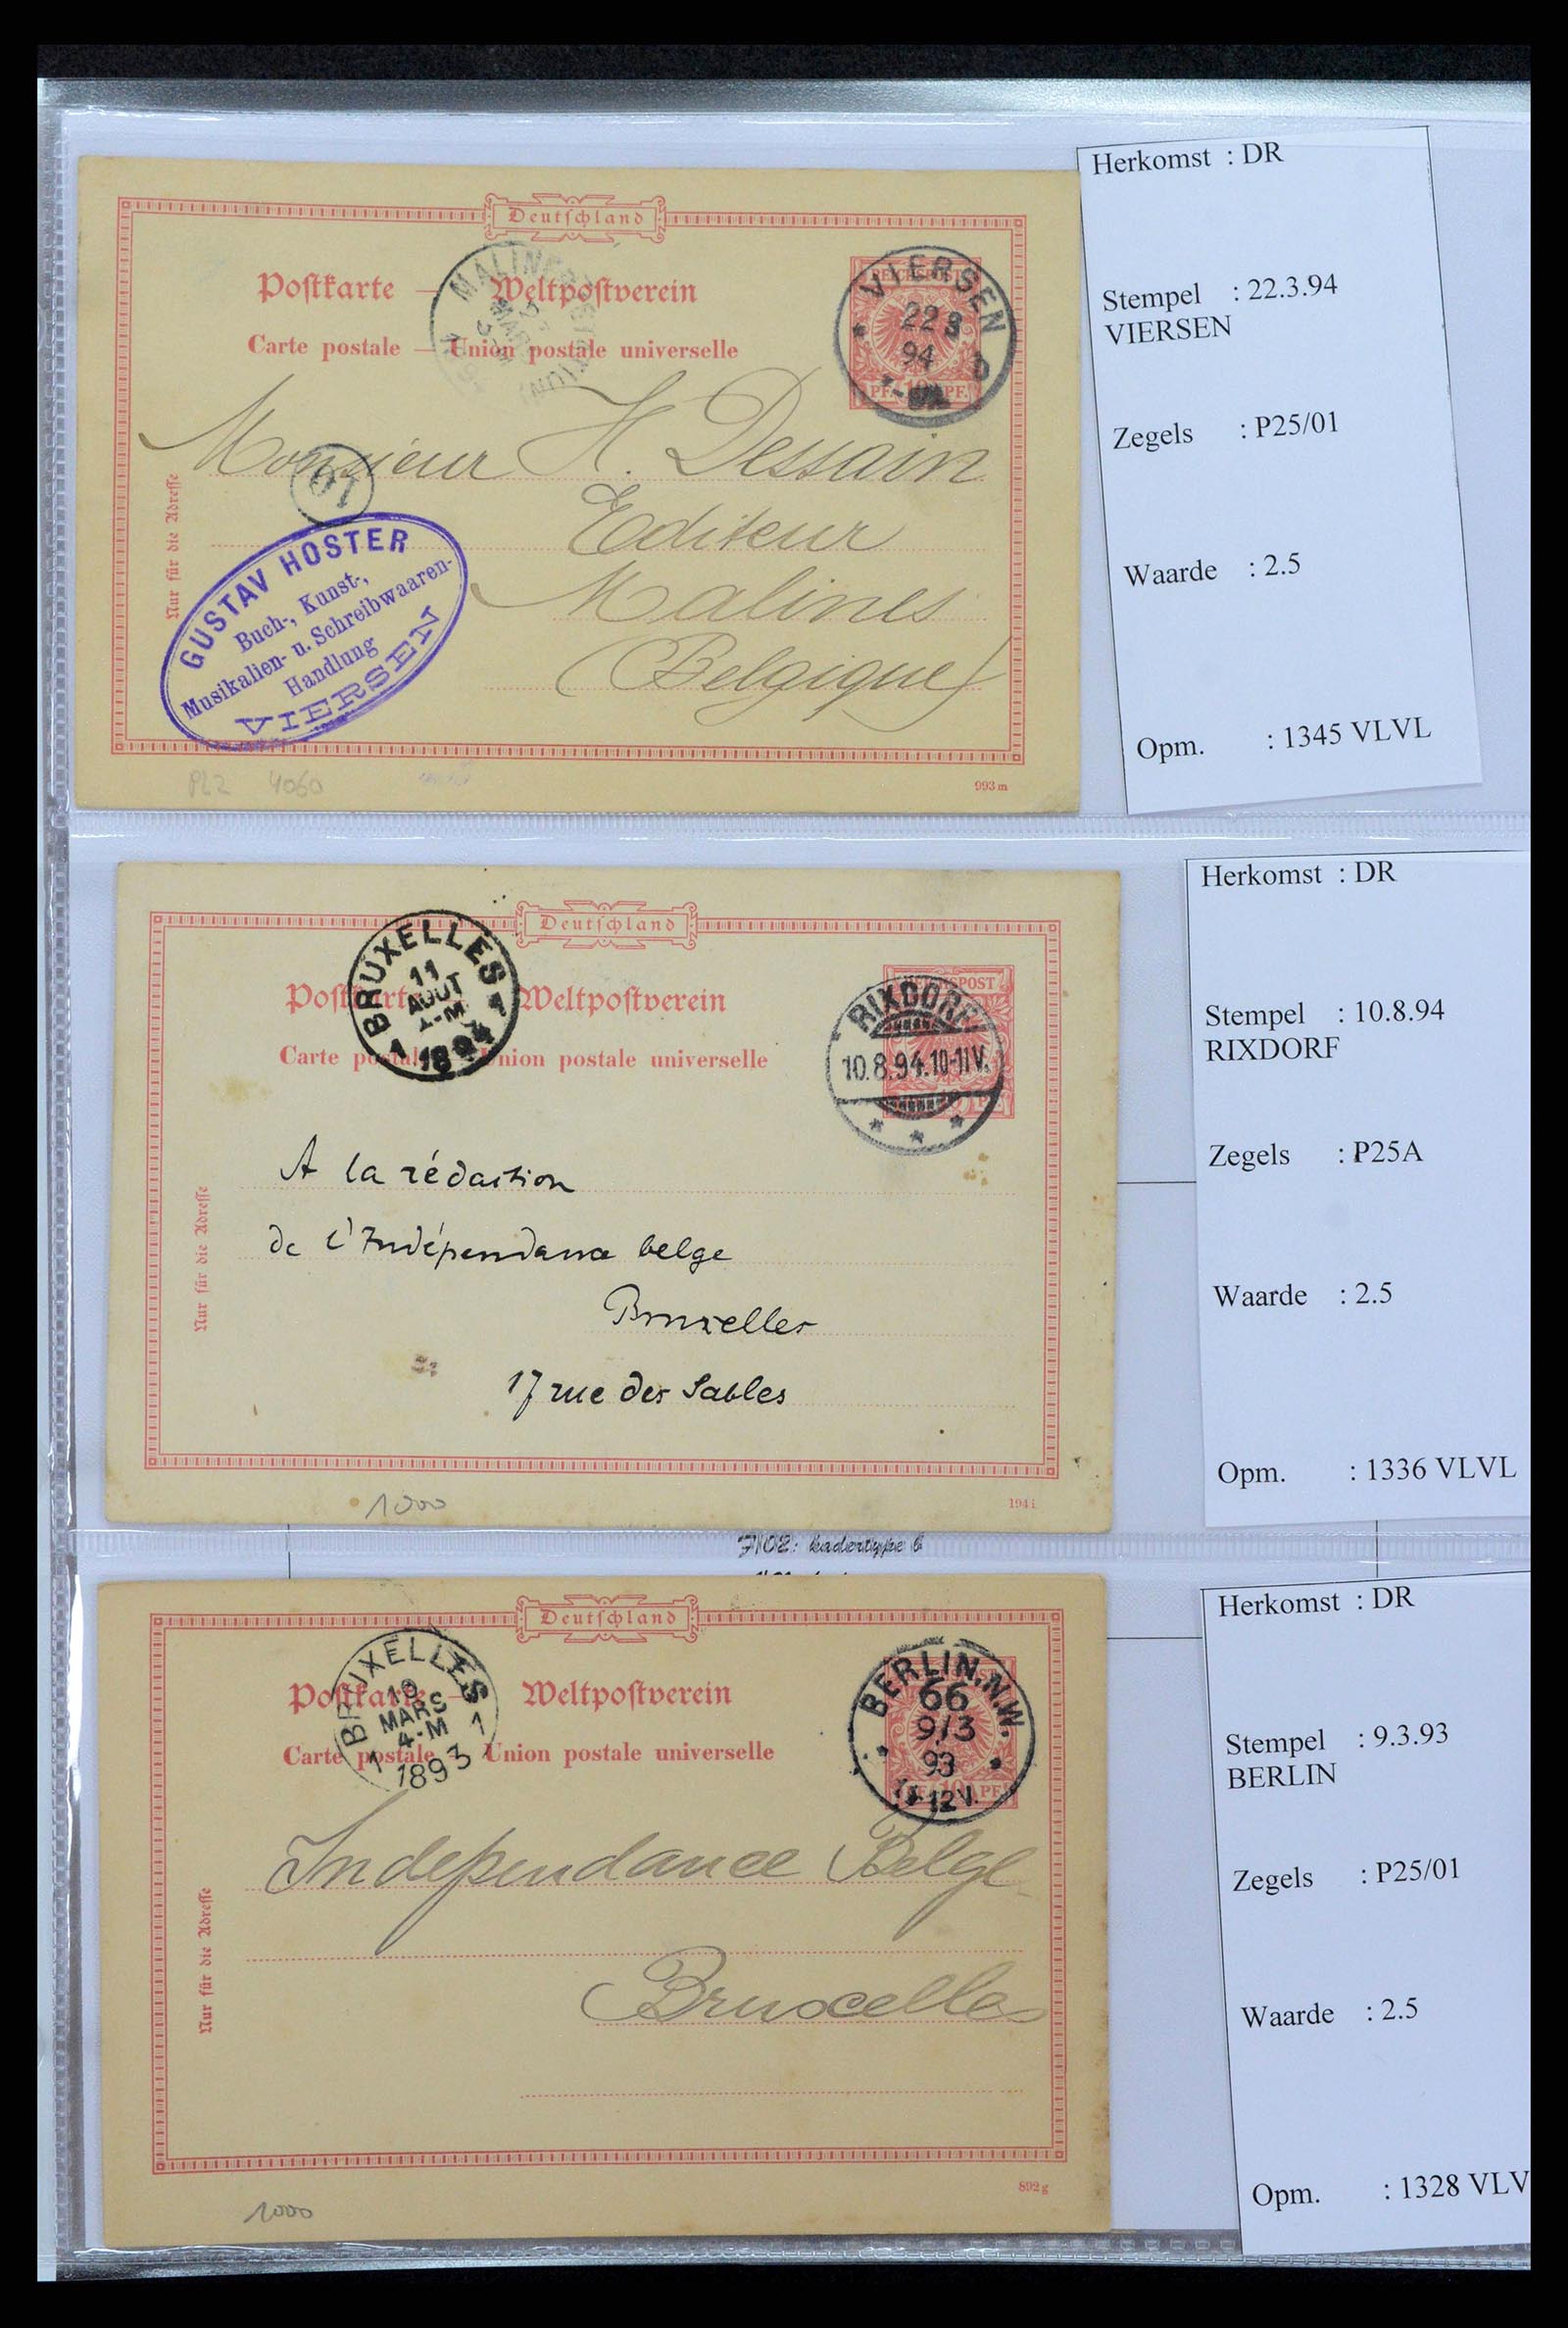 Deutschland
Postkarte — Weltpostverein
Carte postale — Union postale universelle
MALINES (STATION)
MARS
REICHSPOST
VIERSEN
22 3
94
PF. 10 PF.
Monsieur H. Dessain
Editeur
Malines
(Belgique)
Nur für die Adresse
GUSTAV HOSTER
Buch-, Kunst-,
Musikalien- u. Schreibwaaren-
Handlung
VIERSEN
PLZ 4060
993 m
Herkomst : DR
Stempel : 22.3.94
VIERSEN
Zegels : P25/01
Waarde : 2.5
Opm. : 1345 VLVL
Deutschland
Postkarte — Weltpostverein
Carte postale — Union postale universelle
BRUXELLES
11
AOUT
1-M
1 1894
REICHSPOST
RIXDORF
10.8.94.10-11V.
A la rédaction
de l'Indépendance belge
Bruxelles
17 rue des Sables
Nur für die Adresse
1000
194 i
Herkomst : DR
Stempel : 10.8.94
RIXDORF
Zegels : P25A
Waarde : 2.5
Opm. : 1336 VLVL
7102: kadertype 6
Deutschland
Postkarte — Weltpostverein
Carte postale — Union postale universelle
BRUXELLES
10
MARS
4-M
1 1893 1
BERLIN.N.W.
66
9/3
93
11-12V.
Independance Belge
Bruxelles
Nur für die Adresse
1000
892 g
Herkomst : DR
Stempel : 9.3.93
BERLIN
Zegels : P25/01
Waarde : 2.5
Opm. : 1328 VLV